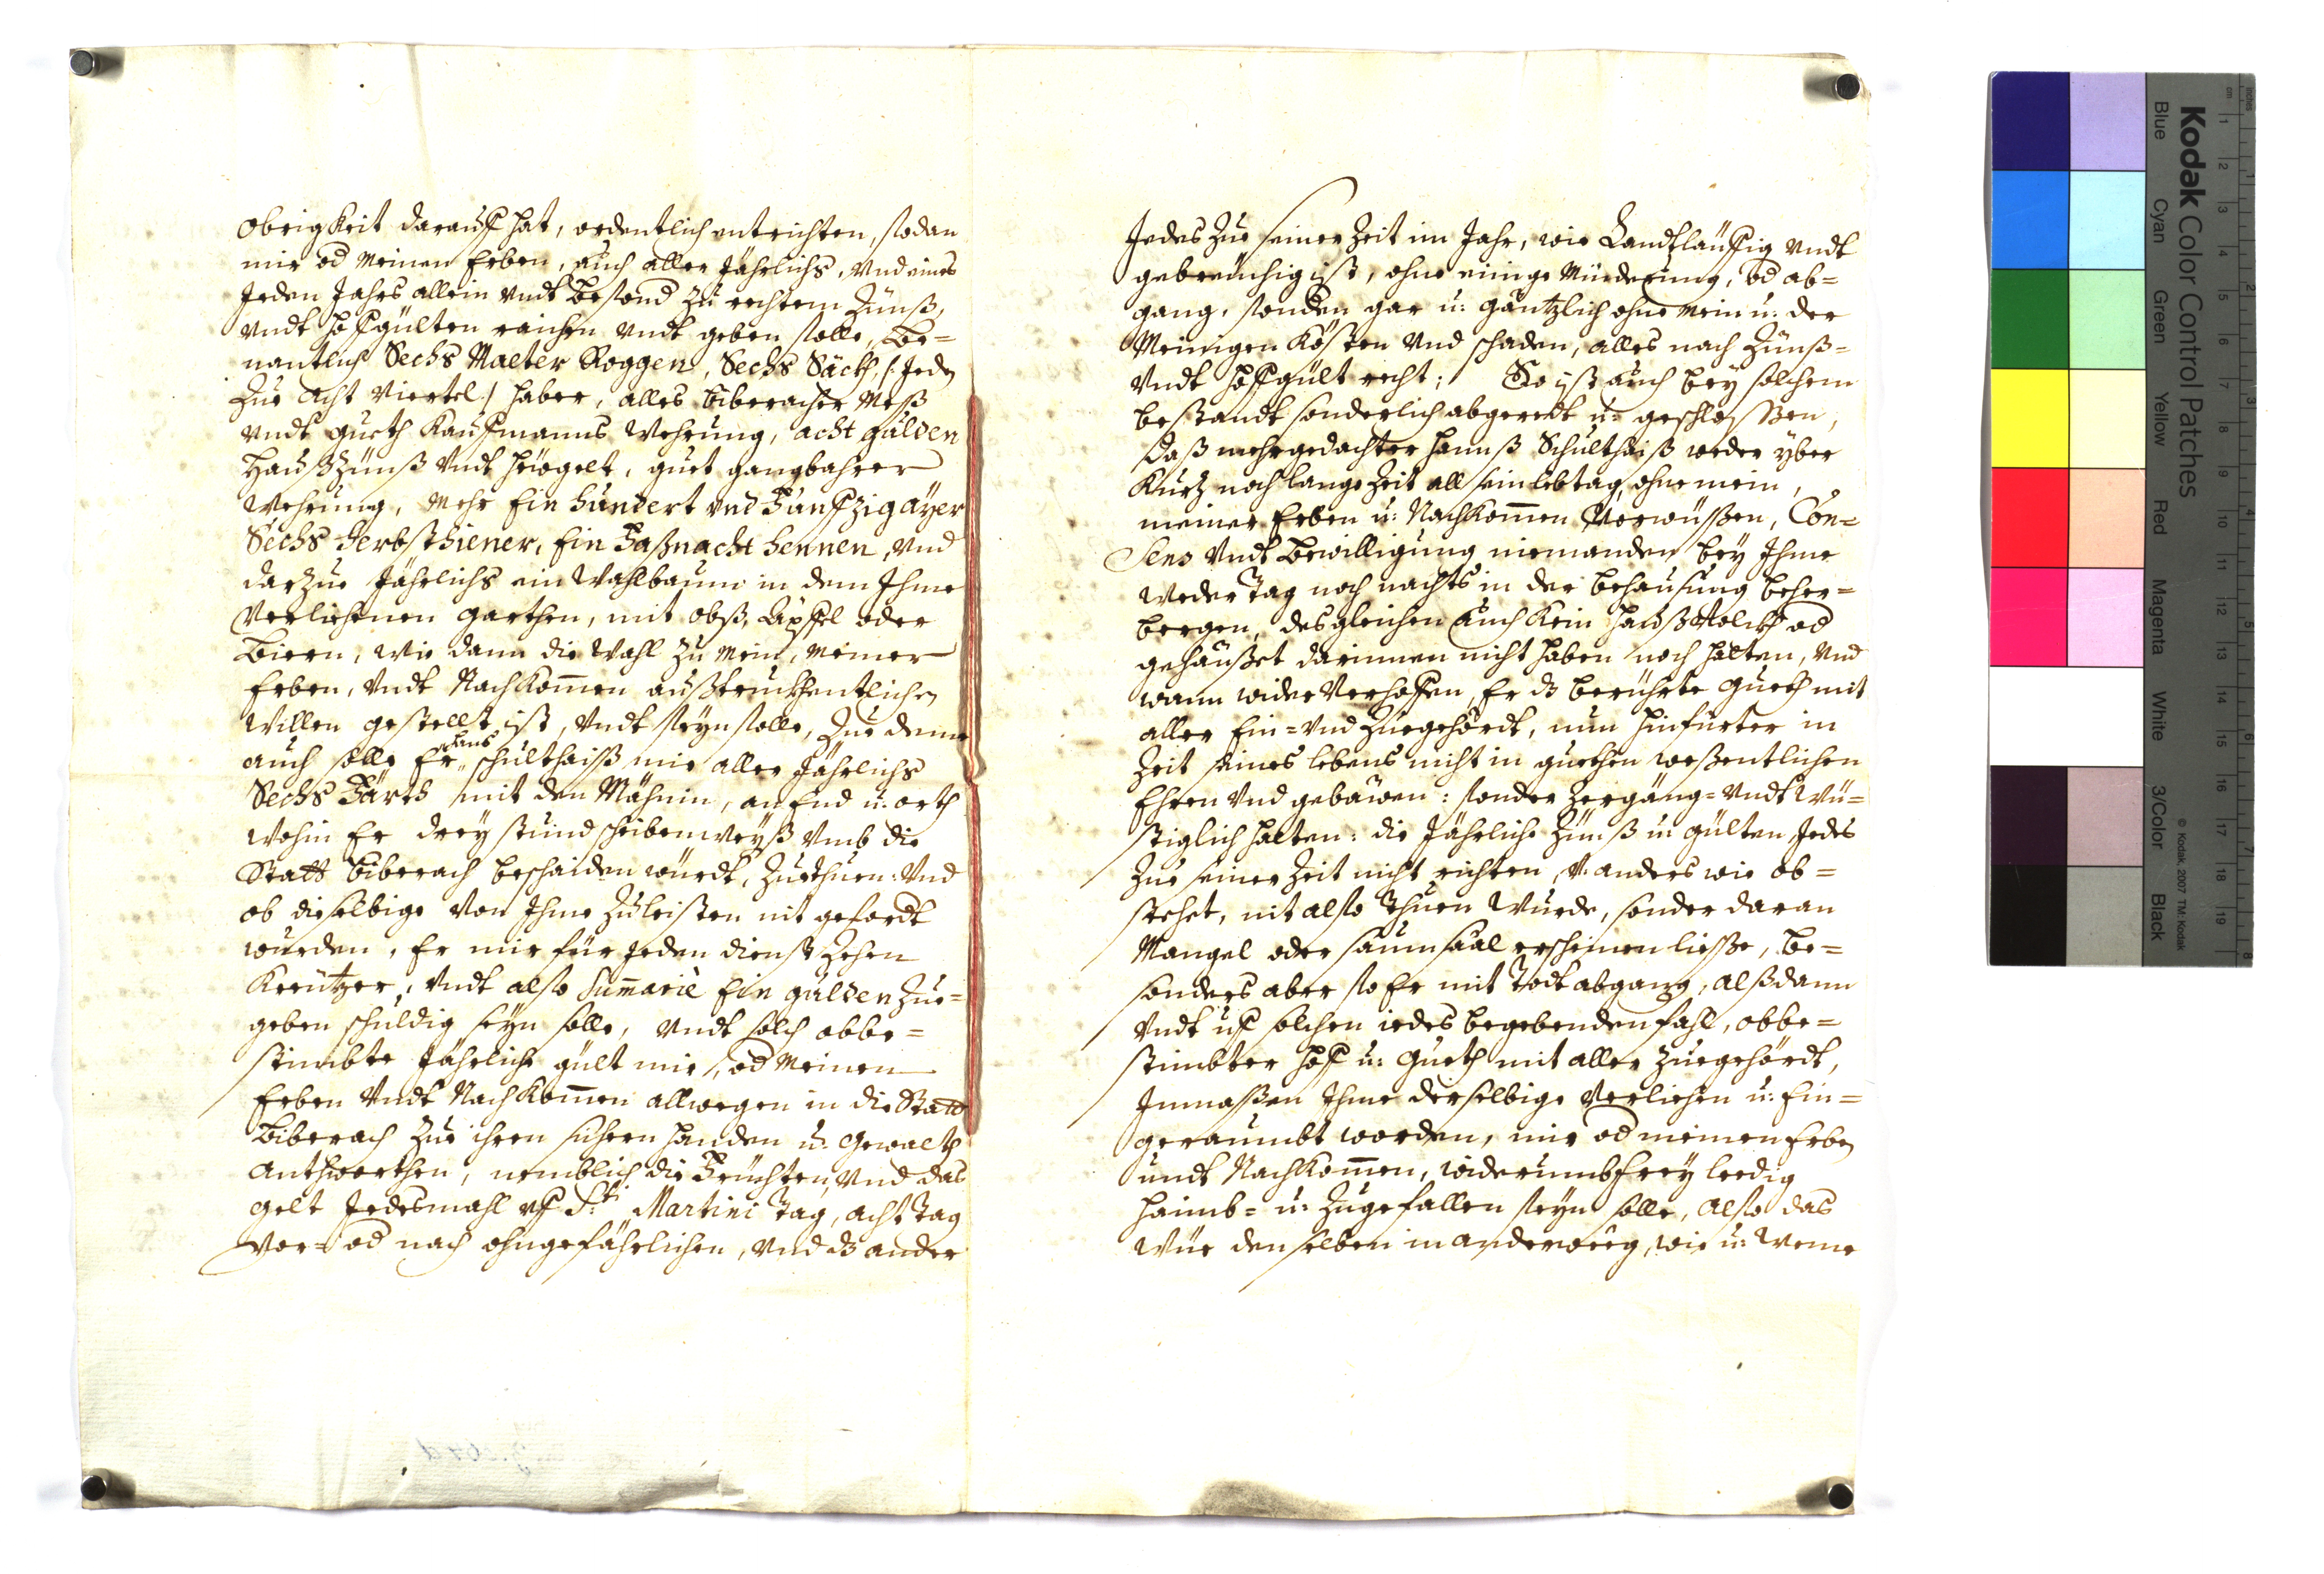 Obrigkeit darauff hat, ordentlich entrichten, sodan
mir od meinen Erben, auch aller Jährlichs, Vnd eines
Jeden Jahrs allein vndt besond zu rechtem Zünß,
vndt hoffgülten raichen vndt geben solle, Be=
nantlich Sechs Malter Roggen, Sechs Säckh, /: Jedn
Zue Acht Viertel :/ haber, alles Biberacher Meß
vndt gueth Kauffmanns Wehrung, acht gulden
Hauß Zünß vndt heügelt, guet gangbahrer
Wehrung, Mehr Ein hundert vnd Funffzig ayer
Sechs Herbsthiener, Ein Faßnacht hennen, vnd
darzue Jährlichs ein Wahlbaum in dem Ihme
Verlichenen garthen, mit obß, Äpffel oder
Biern, wie dann die Wahl zu mein, meiner
Erben, vndt Nachkomen außtruckhentlichen
Willen gestellt ist, vndt seyn solle, Zue deme
auch solle Er Hans Schulthaiß mir aller Jährlichs
Sechs Färth mit den Mähnin, an End u: orth
wohin Er drey stund scheibenweyß vmb die
Statt Biberach beschaiden würdt, Zuethuen: Vnd
ob dieselbige von Ihme Zuleisten nit gefordt
wurden, Er mir für Jeden dienst Zehen
Kreützer, vndt also Sumariè Ein gulden Zue=
geben schuldig seyn solle, vndt solch obbe=
stimbte Jährliche gült mir, od meinen
Erben vndt Nachkomen allwegen in die Statt
Biberach Zue ihren sichern handen u: gewalth
Anthworthen, nemblich die Früchten, vnd das
gelt Jedesmahl vff Sti Martini Tag, acht Tag
vor= od nach ohngefährlichen, vnd dz ander
Jedes Zue seiner Zeit im Jahr, wie Landtläuffig vndt
gebreüchig ist, ohne einige Münderung, od ab=
gang, sonden gar u: gäntzlich ohne mein u: der
Meinigen Kösten vnd schaden, alles nach Zünß=
vndt hoffgült recht; So ist auch bey solchem
bestandt sonderlich abgeredt u: geschlossen,
daß mehrgedachter Hannß Schulthaiß weder yber
Kurtz noch lange Zeit all sein lebtag, ohne mein,
meiner Erben u: Nachkomen Vorwüßen, Con=
sens vndt Bewilligung niemanden bey Ihme
weder Tag noch nachts in der behausung beher=
bergen, desgleichen auch kein haußvolckh od
gehäußet darinnen nicht haben noch halten, vnd
wann wider Verhoffen, Er dz berührte gueth mit
aller Ein= vnd Zuegehördt, nun hinfürter in
Zeit seines lebens nicht in guethen weßentlichen
Ehren vnd gebäwen: sonder Zergäng= vndt wü=
stiglich halten: die Jährliche Zünß u: gülten Jedes
Zue seiner Zeit nicht richten, V: anders wie ob=
stehet, nit also thuen wurde, sonder daran
Mangel oder saumsaal erscheinen liesse, be=
sonders aber so Er mit Todt abgang, alßdann
vndt uff solchen iedes begebenden fahl, obbe=
stimbter hoff u: gueth mit aller Zuegehördt,
Inmaßen Ihme derselbige verlichen u: Ein=
geraumbt worden, mir od meinen Erben
undt Nachkomen, widerumb frey leedig
haimb= u: Zugefallen seyn solle, also das
Wür denselben in anderweeg, wie u: wenne
Kodak Color Control Patches
Blue Cyan Green Yellow Red Magenta White 3/Color Black
© Kodak, 2007 TM: Kodak